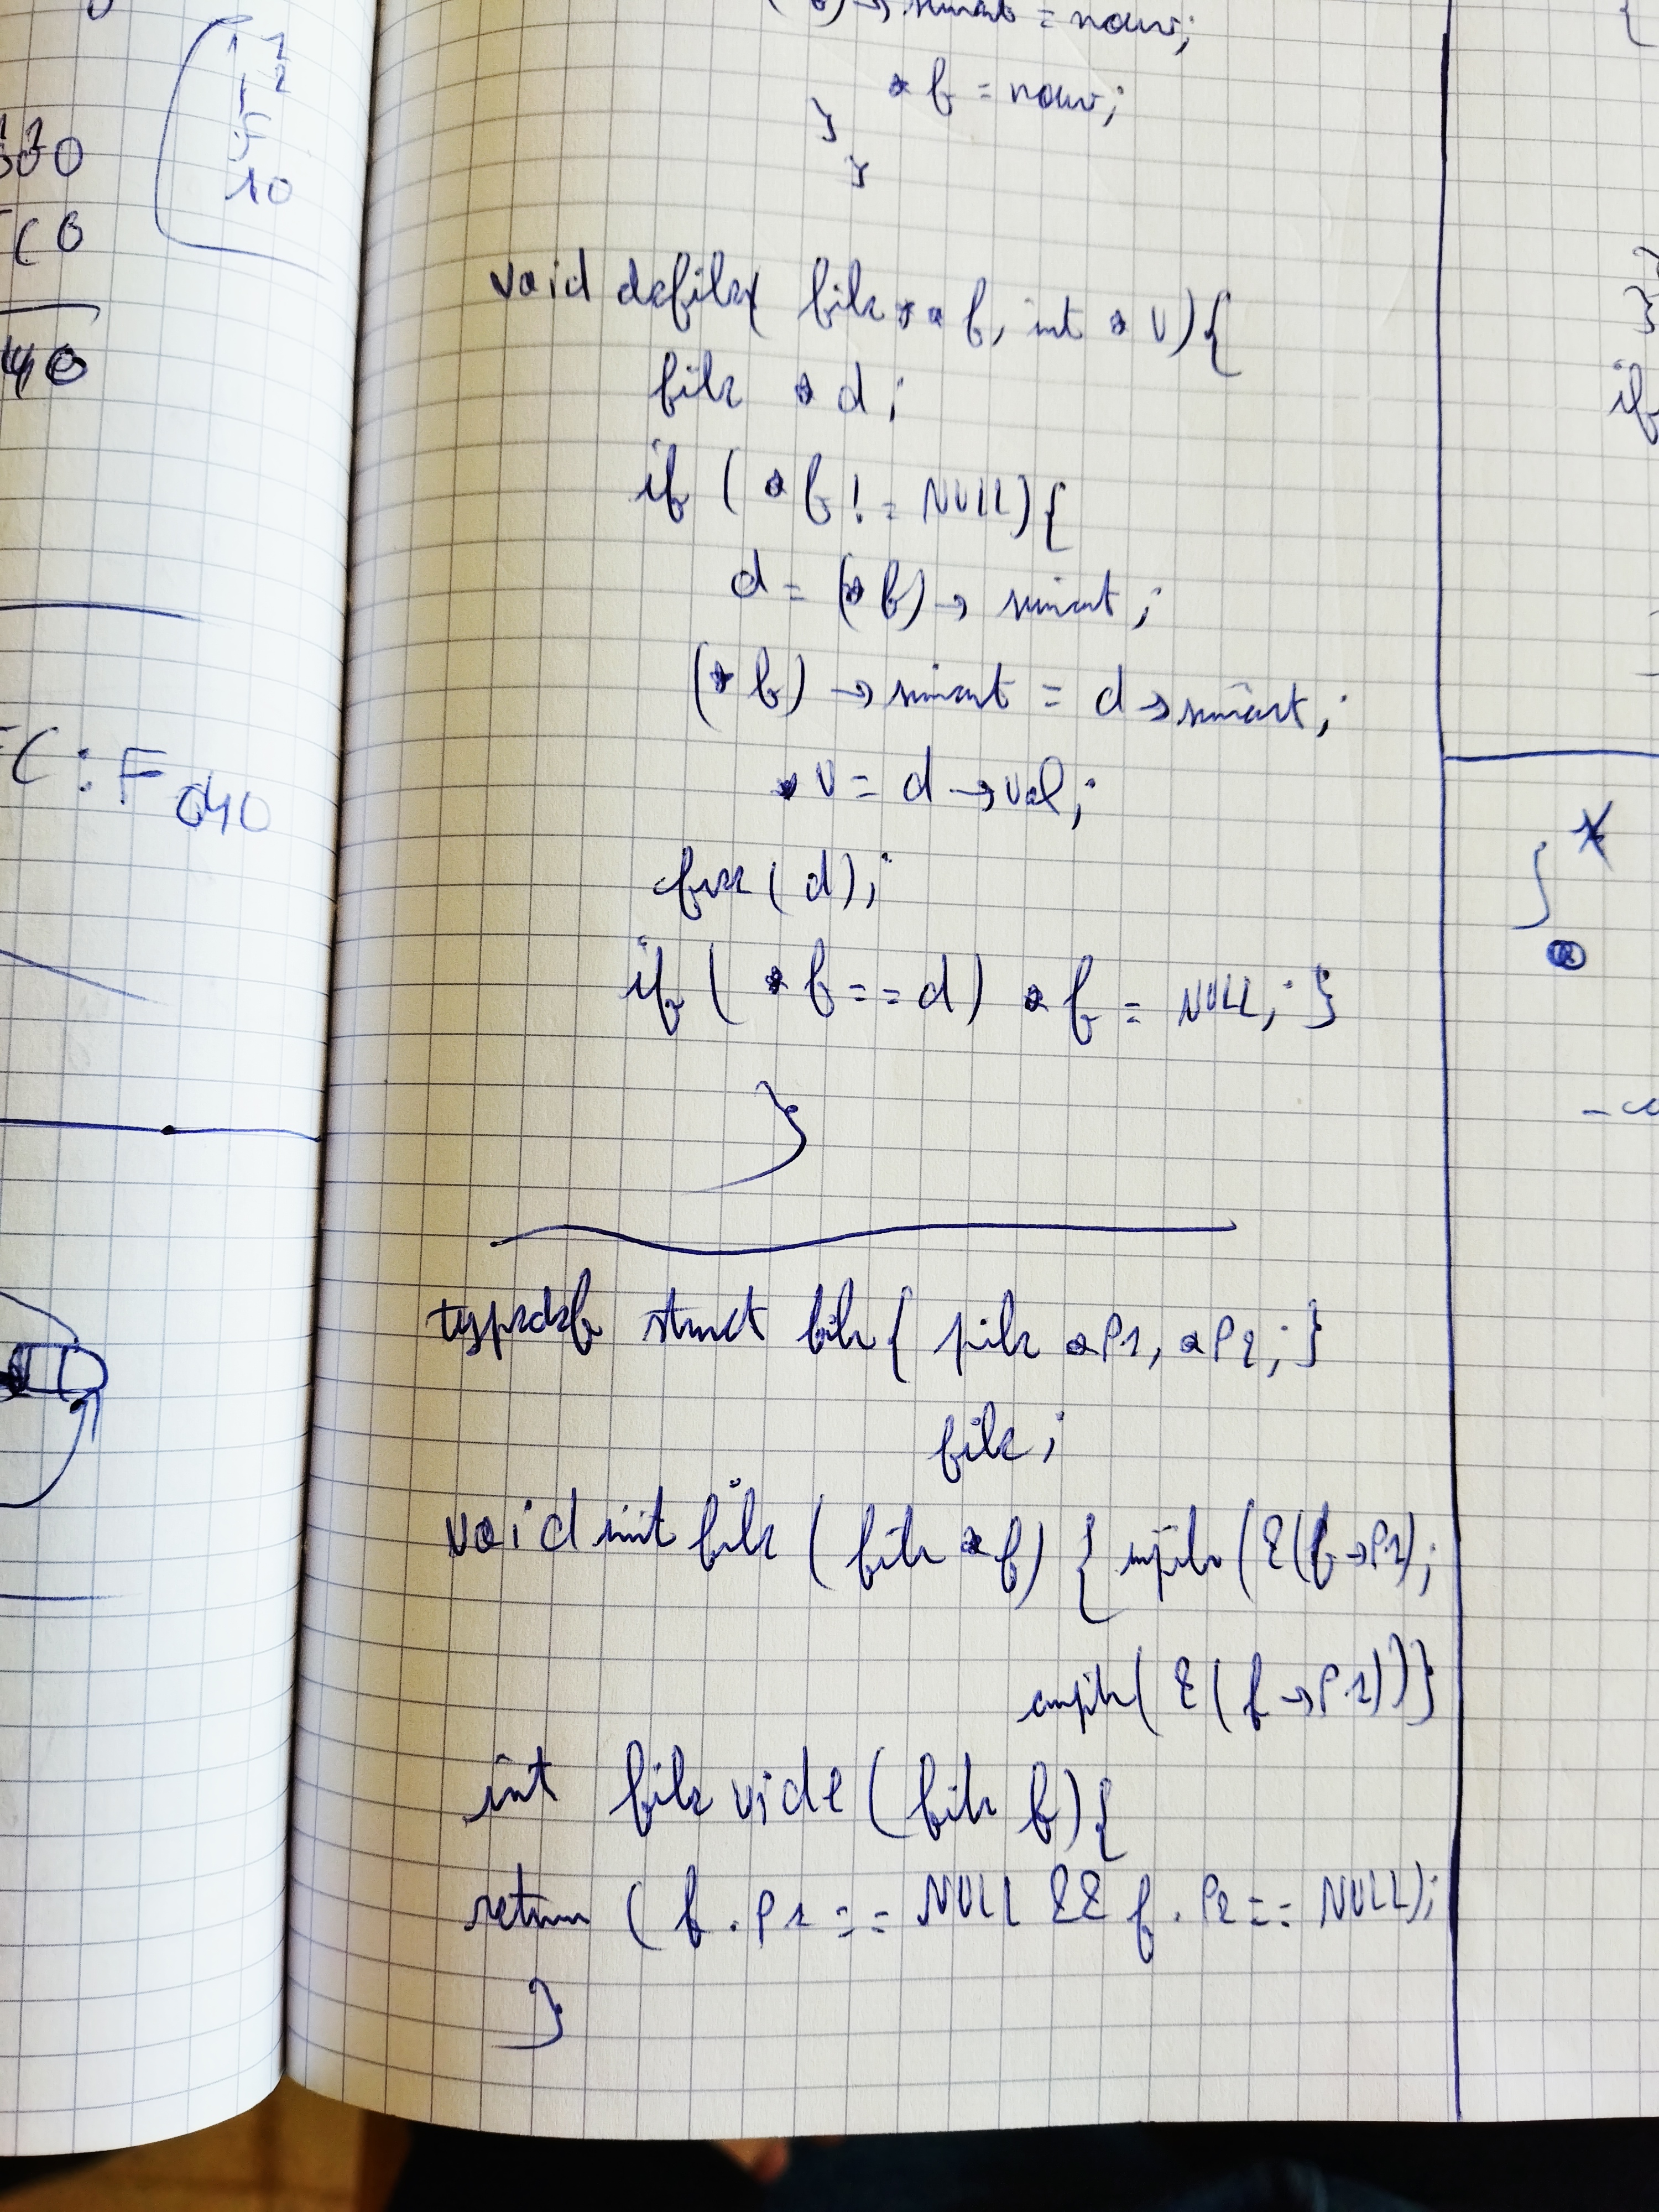 1 1
2
5
10
300
C0
40
C : Fd40
→ suivant = nouv;
* f = nouv;
}
}
void defiler( file * * f, int * v){
file * d;
if ( * f != NULL){
d = (* f) → suivant ;
(* f) → suivant = d → suivant ;
* v = d → val ;
free ( d ) ;
if ( * f == d ) * f = NULL ; }
}
typedef struct file { pile * P1, * P2 ; }
file ;
void init file ( file * f ) { (&(f → P1) ;
(&( f → P1)) }
int file vide ( file f ) {
return ( f . P1 == NULL && f . P2 == NULL) ;
}
{
}
if
∫